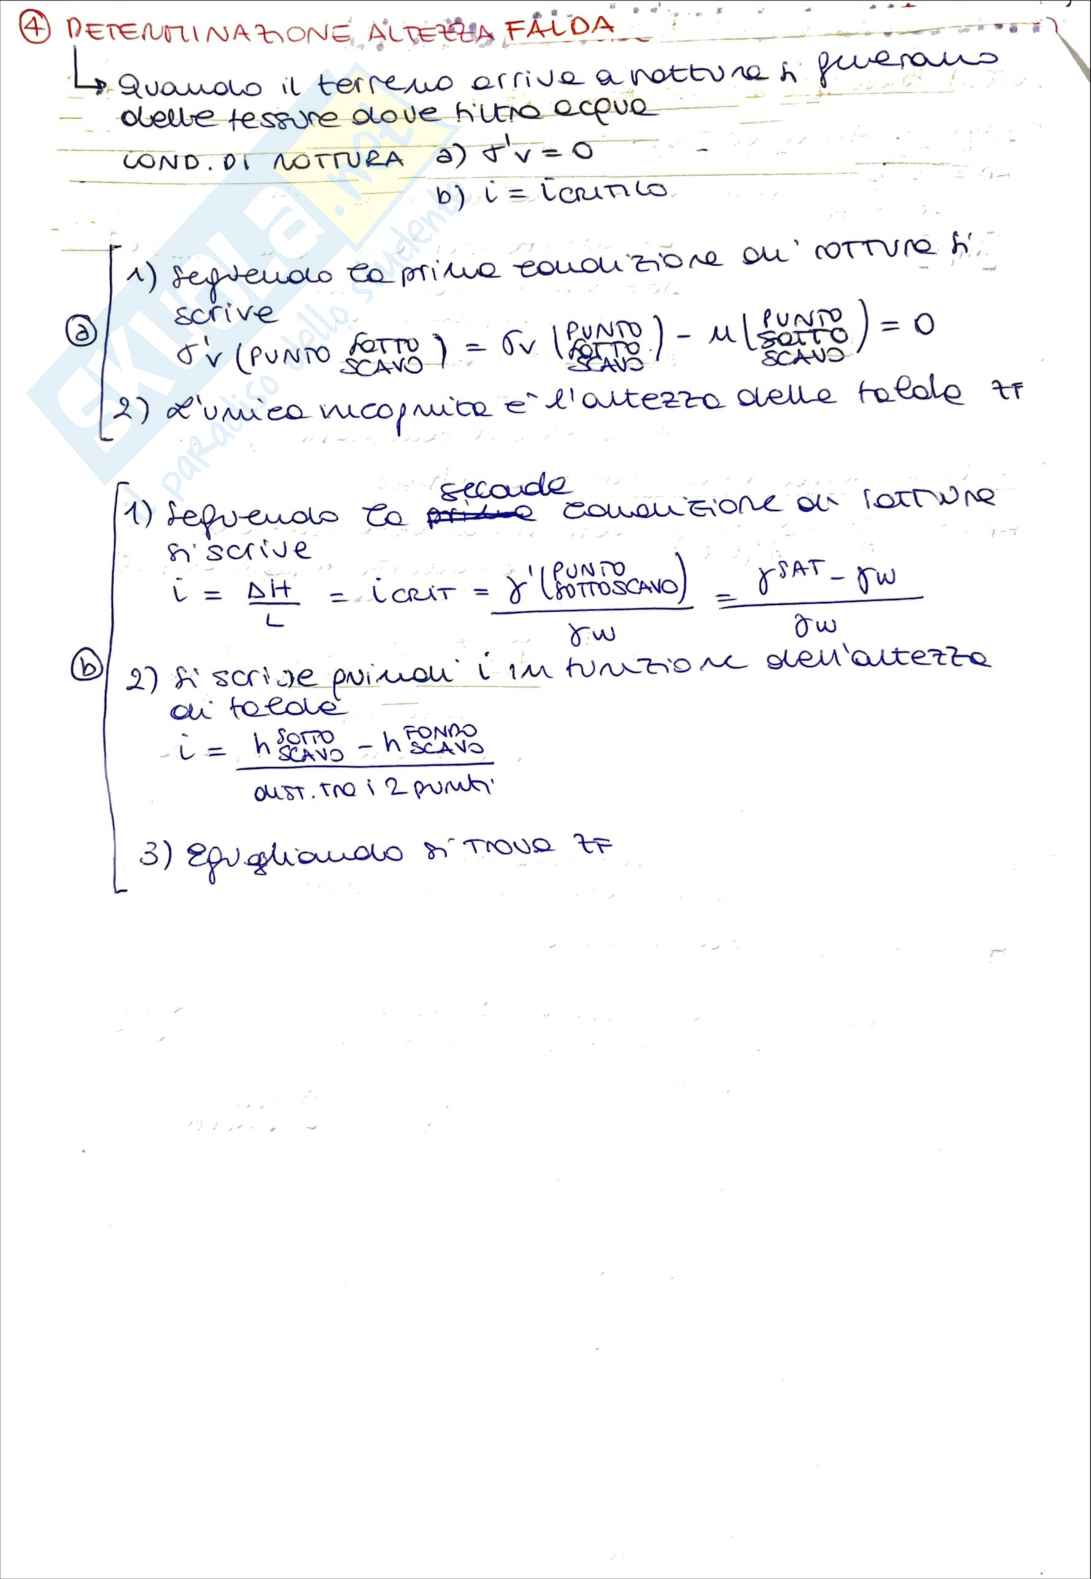 ④ DETERMINAZIONE ALTEZZA FALDA
↳ Quando il terreno arriva a rottura si generano
delle fessure dove filtra acqua
COND. DI ROTTURA a) σ'v = 0
b) i = i CRITICO
ⓐ
1) Seguendo la prima condizione di rottura si
scrive
σ'v (PUNTO SOTTO SCAVO) = σv (PUNTO SOTTO SCAVO) - u (PUNTO SOTTO SCAVO) = 0
2) L'unica incognita è l'altezza della falda zF
ⓑ
1) Seguendo la prima seconda condizione di rottura
si scrive
i = ΔH / L = i CRIT = γ' (PUNTO SOTTO SCAVO) / γw = γSAT - γw / γw
2) Si scrive quindi i in funzione dell'altezza
di falda
i = h SOTTO SCAVO - h FONDO SCAVO / dist. tra i 2 punti
3) Eguagliando si trova zF
SKUOLA.net
paradiso dello studente